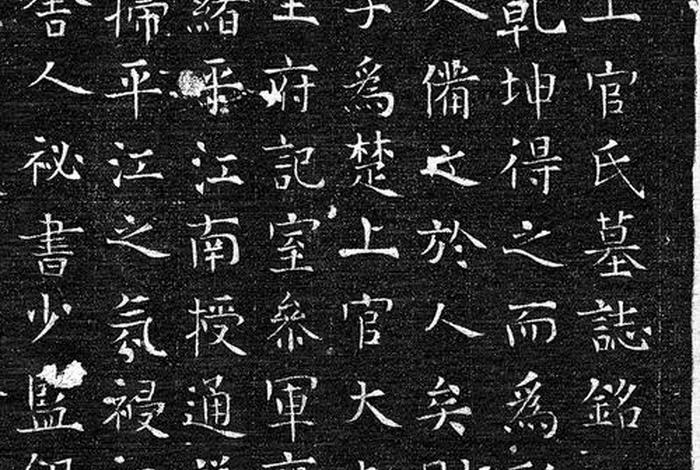 上官氏墓誌銘
乾坤得之而爲
人備之於人矣則
子爲楚上官大
王府記室叅軍
緒平江南授通
掃平江之氛祲
舍人祕書少監